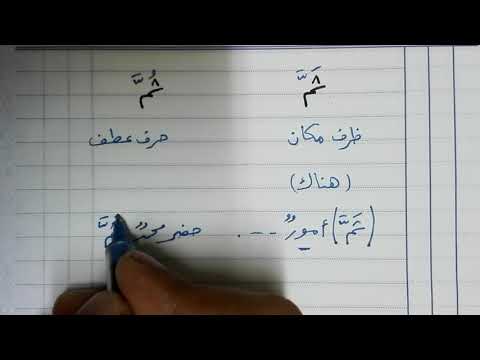 ثَمَّ ثُمَّ
ظرف مكان حرف عطف
(هناك)
(ثَمَّ) أمورٌ ---. حضر محمدٌ ثُمَّ